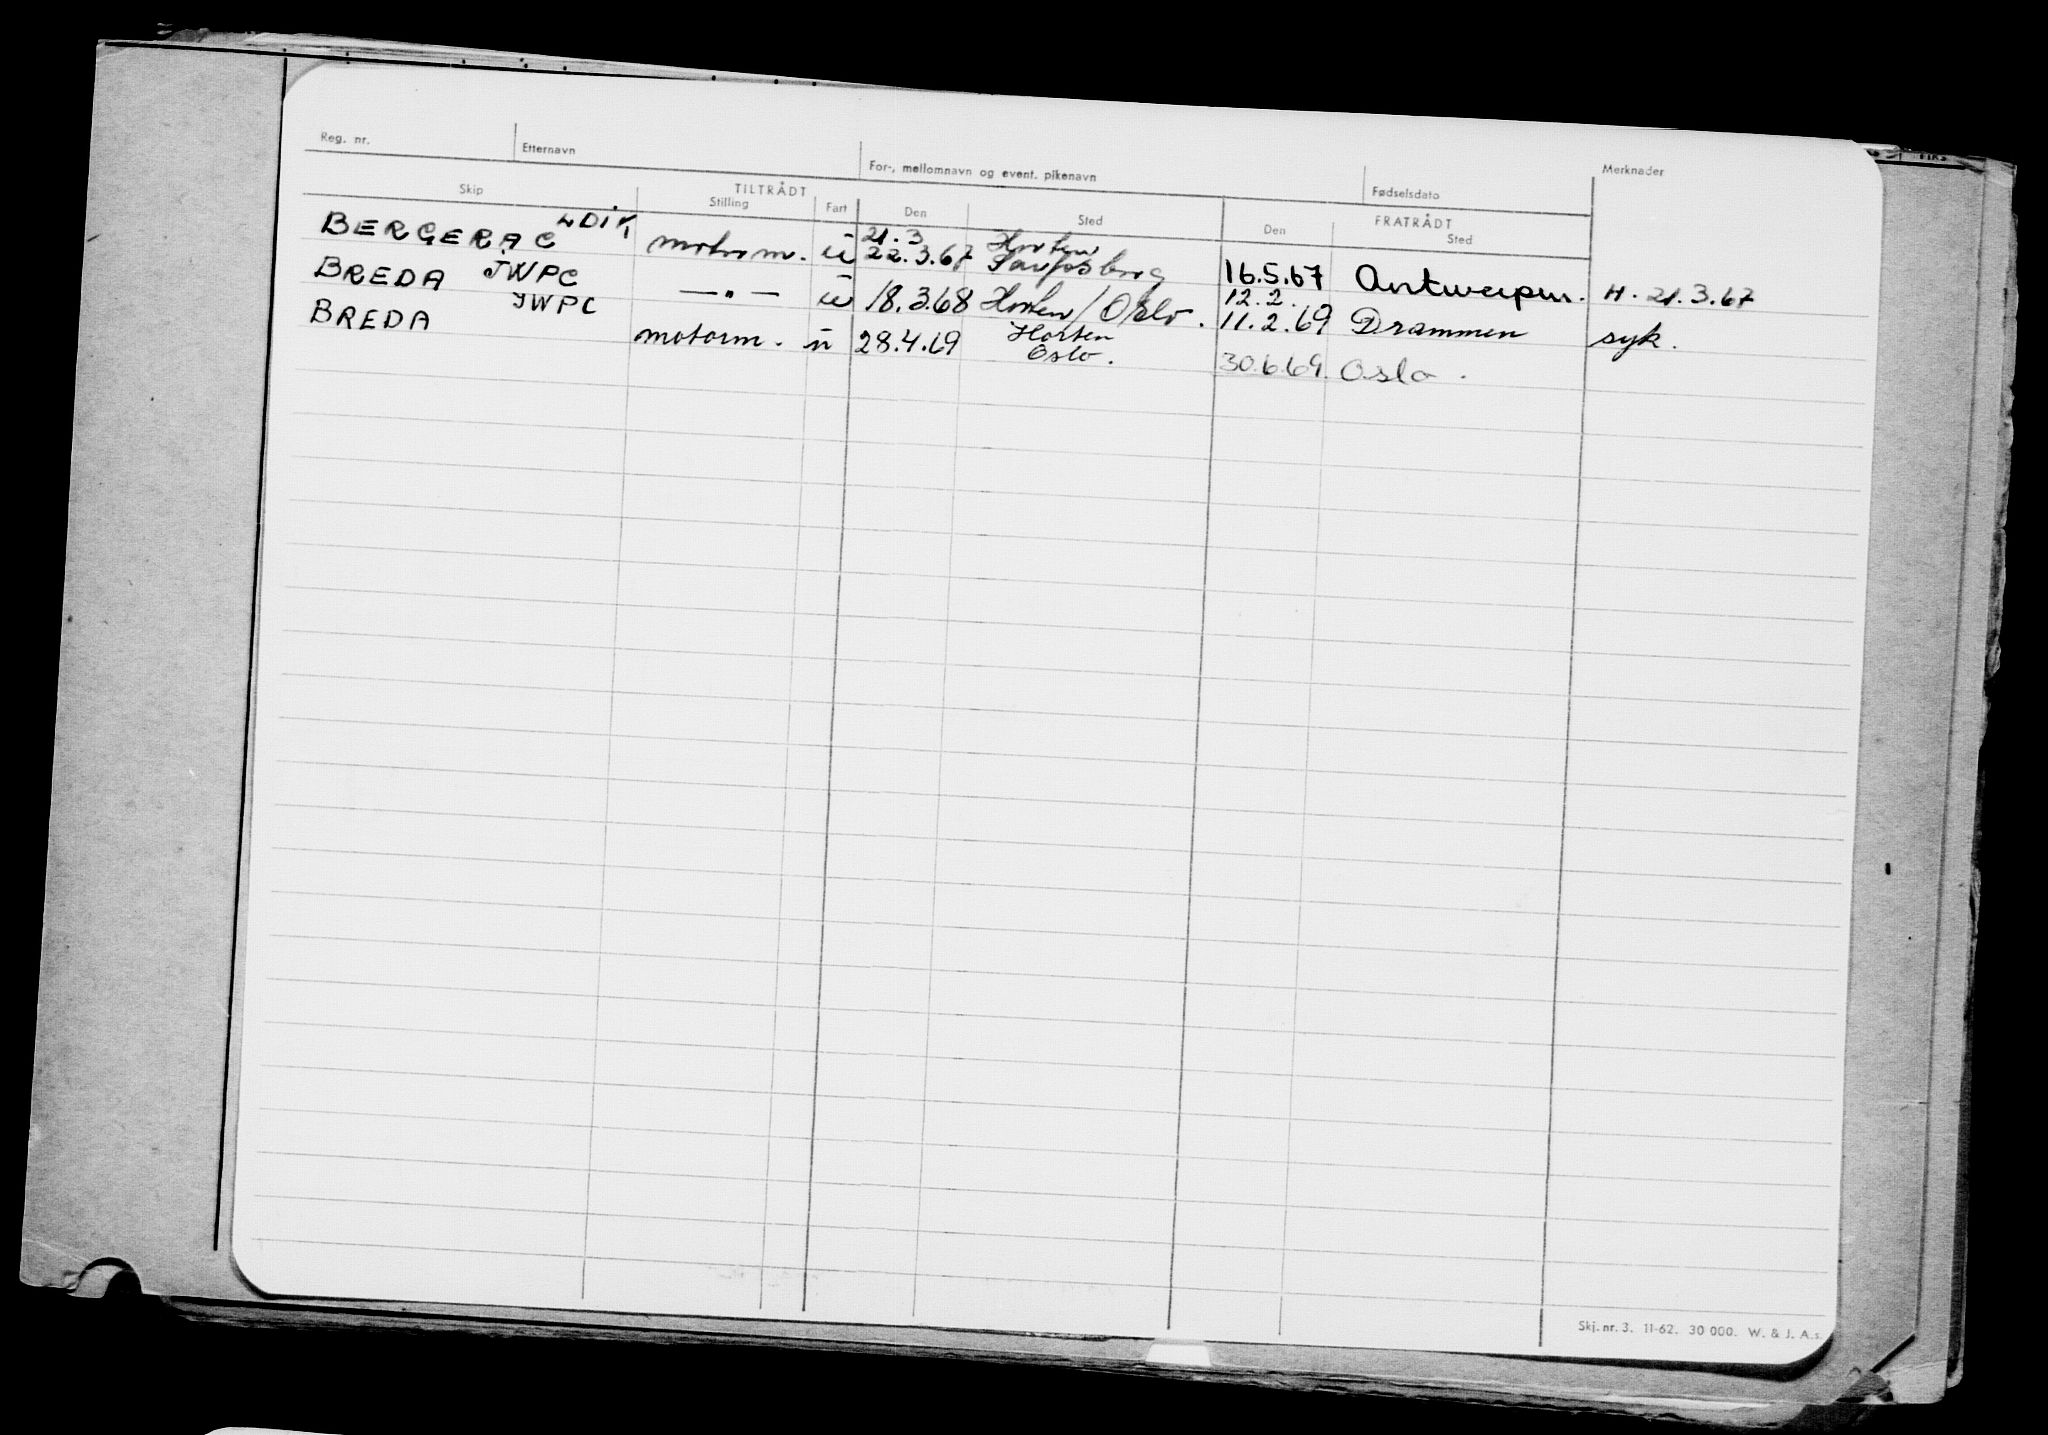 Reg. nr. Etternavn For-, mellomnavn og event. pikenavn Fødselsdato Merknader
TILTRÅDT FRATRÅDT
Skip Stilling Fart Den Sted Den Sted
BERGERAC LDIK motorm. u 21.3 22.3.67 Horten Sarpsborg 16.5.67 Antwerpen. H. 21.3.67
BREDA JWPC —"— u 18.3.68 Horten/Oslo. 12.2. 11.2.69 Drammen syk.
BREDA JWPC motorm. u 28.4.69 Horten Oslo. 30.6.69. Oslo.
Skj. nr. 3. 11-62. 30 000. W. & J. A.s.